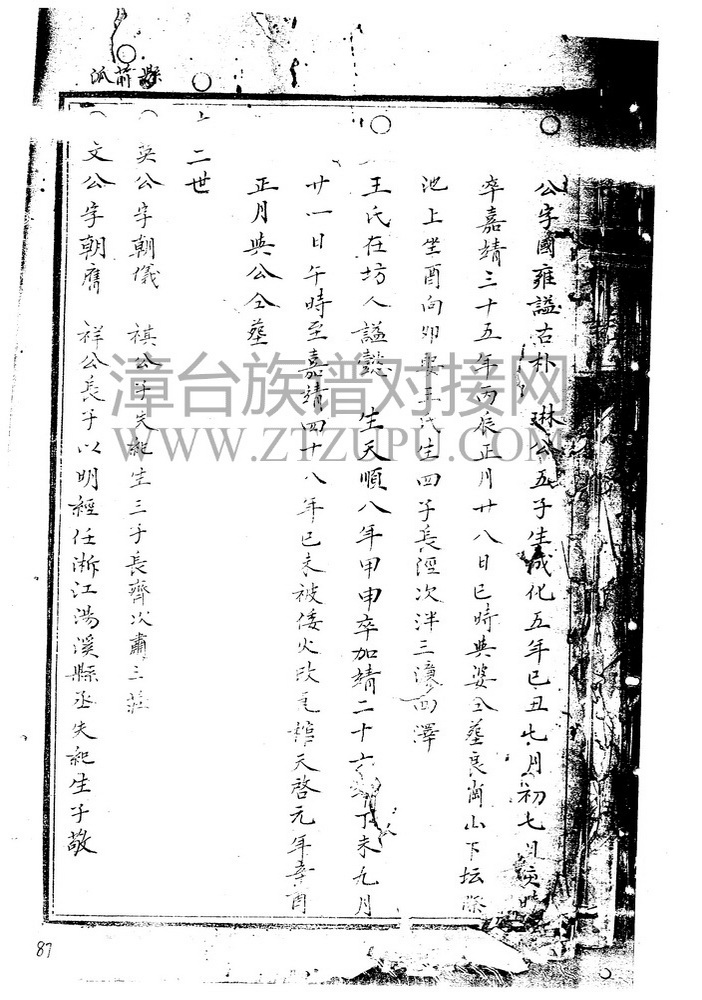 公字國雍謚古朴 琳公五子生成化五年巳丑七月初七日亥時
卒嘉靖三十五年丙辰正月廿八日巳時與婆仝墓良崗山下坛
池上坐酉向卯娶王氏生四子長涇次泮三瀼四澤
王氏在坊人謚懿 生天順八年甲申卒加靖二十六丁未九月
廿一日午時至嘉靖四十八年巳未被倭火改天啓元年辛酉
正月與公仝墓
上二世
英公字朝儀 祺公子失紀生三子長齊次肅三莊
文公字朝 祥公長子以明經任浙江湯溪縣丞失紀生子敬
漳台族谱对接网
WWW.ZTZUPU.COM
87